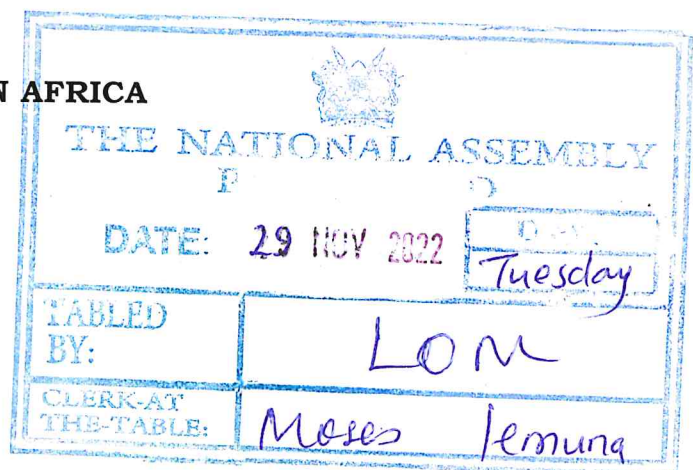 N AFRICA
THE NATIONAL ASSEMBLY
DATE: 29 NOV 2022
DAY
Tuesday
TABLED
BY:
LOM
CLERK-AT
THE-TABLE:
Moses Lemuna